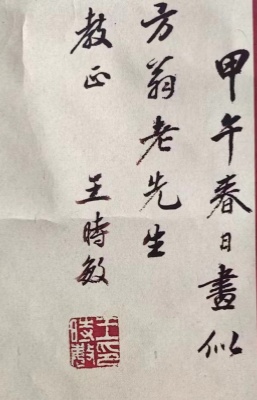 甲午春日畫似
方翁老先生
教正
王時敏
王時敏印